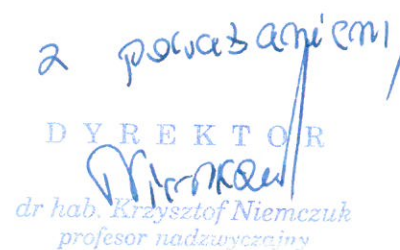 z poważaniem,
DYREKTOR
dr hab. Krzysztof Niemczuk
profesor nadzwyczajny